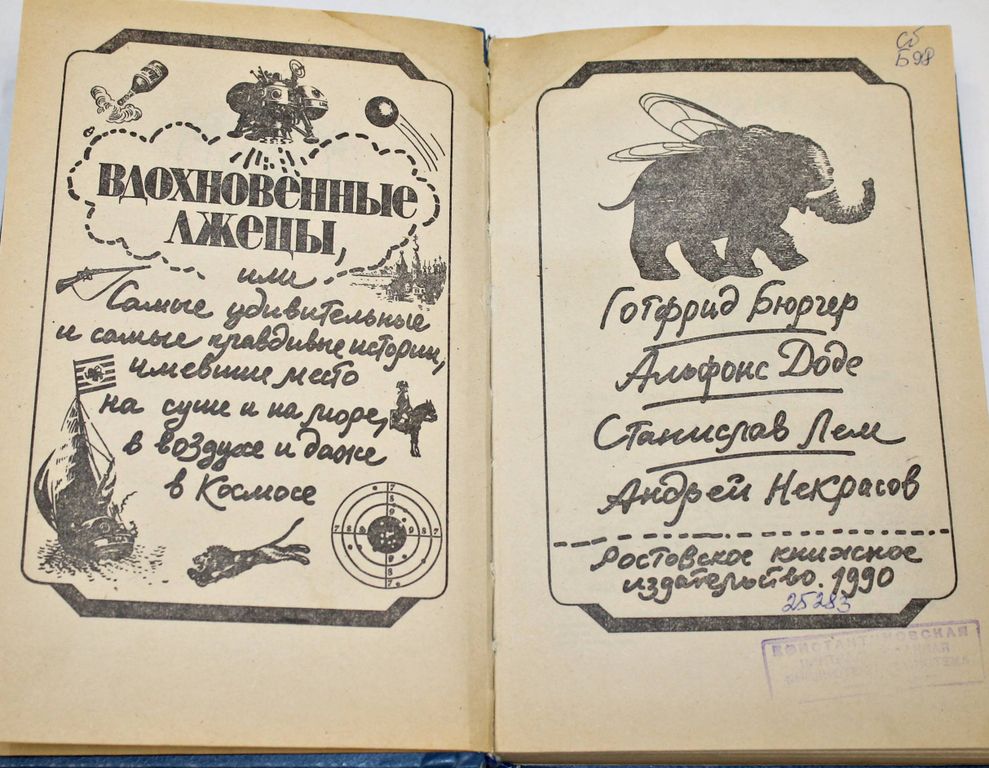 ВДОХНОВЕННЫЕ
ЛЖЕЦЫ,
или
Самые удивительные
и самые правдивые истории,
имевшие место
на суше и на море,
в воздухе и даже
в Космосе
7 8 9 9 8 7
7
8
9
9
8
7
Сб
Б98
Готфрид Бюргер
Альфонс Доде
Станислав Лем
Андрей Некрасов
Ростовское книжное
издательство. 1990
25283